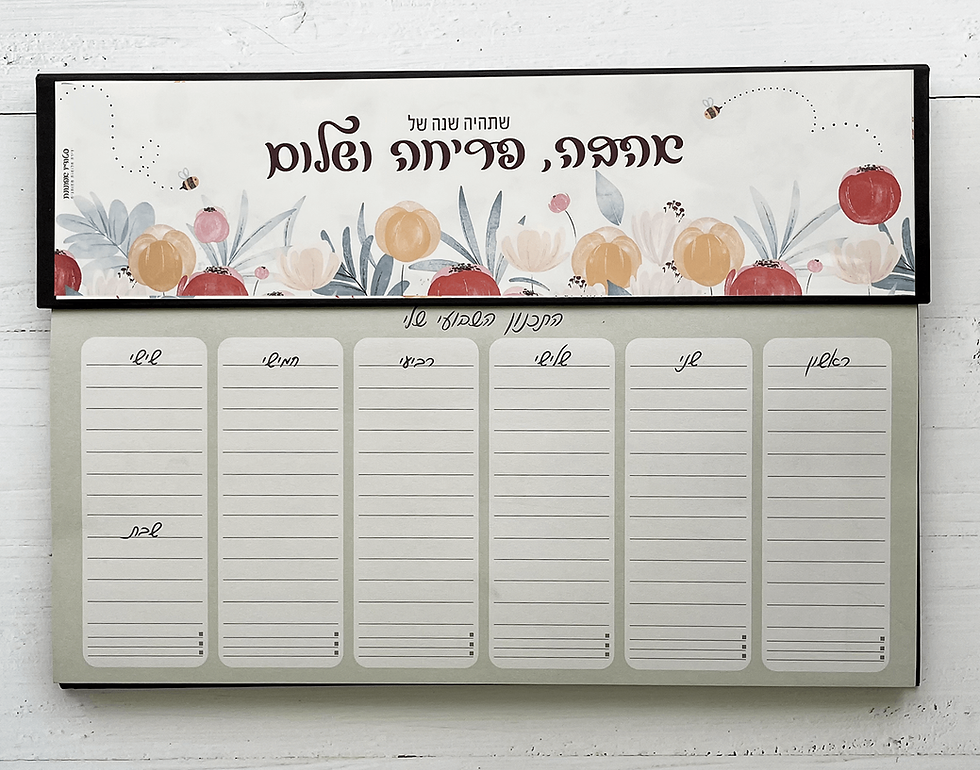 שתהיה שנה של
אהבה, פריחה ושלום
התכנון השבועי שלי
ראשון
שני
שלישי
רביעי
חמישי
שישי
שבת